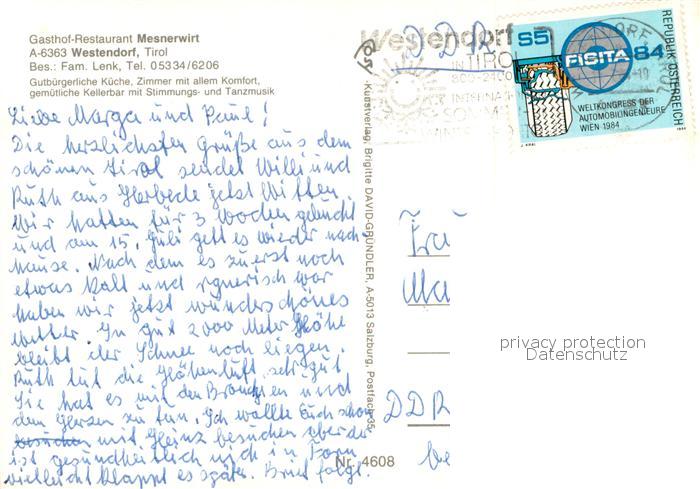 Gasthof-Restaurant Mesnerwirt
A-6363 Westendorf, Tirol
Bes.: Fam. Lenk, Tel. 05334/6206
Gutbürgerliche Küche, Zimmer mit allem Komfort,
gemütliche Kellerbar mit Stimmungs- und Tanzmusik
Liebe Marga und Paul!
Die herzlichsten Grüße aus dem
schönen Tirol sendet Willi und
Ruth aus Herbede jetzt Witten
Wir hatten für 3 Wochen gebucht
und am 15. Juli geht es wieder nach
hause. Nach dem es zuerst noch
etwas kalt und regnerisch war
haben wir jetzt wunderschönes
Wetter. In gut 2000 Meter Höhe
bleibt der Schnee noch liegen.
Ruth tut die Höhenluft sehr gut
Sie hat es mit den Bronchien und
dem Herzen zu tun. Ich wollte Euch schon
besuchen mit Heinz besuchen aber der
ist gesundheitlich nich in Form
vielleicht klappt es später. Brief folgt.
Kunstverlag, Brigitte DAVID-GRÜNDLER, A-5013 Salzburg, Postfach 35
Nr. 4608
DDR
Westendorf
IN TIROL
S5
84
FISITA
WELTKONGRESS DER
AUTOMOBILINGENIEURE
WIEN 1984
REPUBLIK ÖSTERREICH
Frau
Ma
DDR
privacy protection
Datenschutz